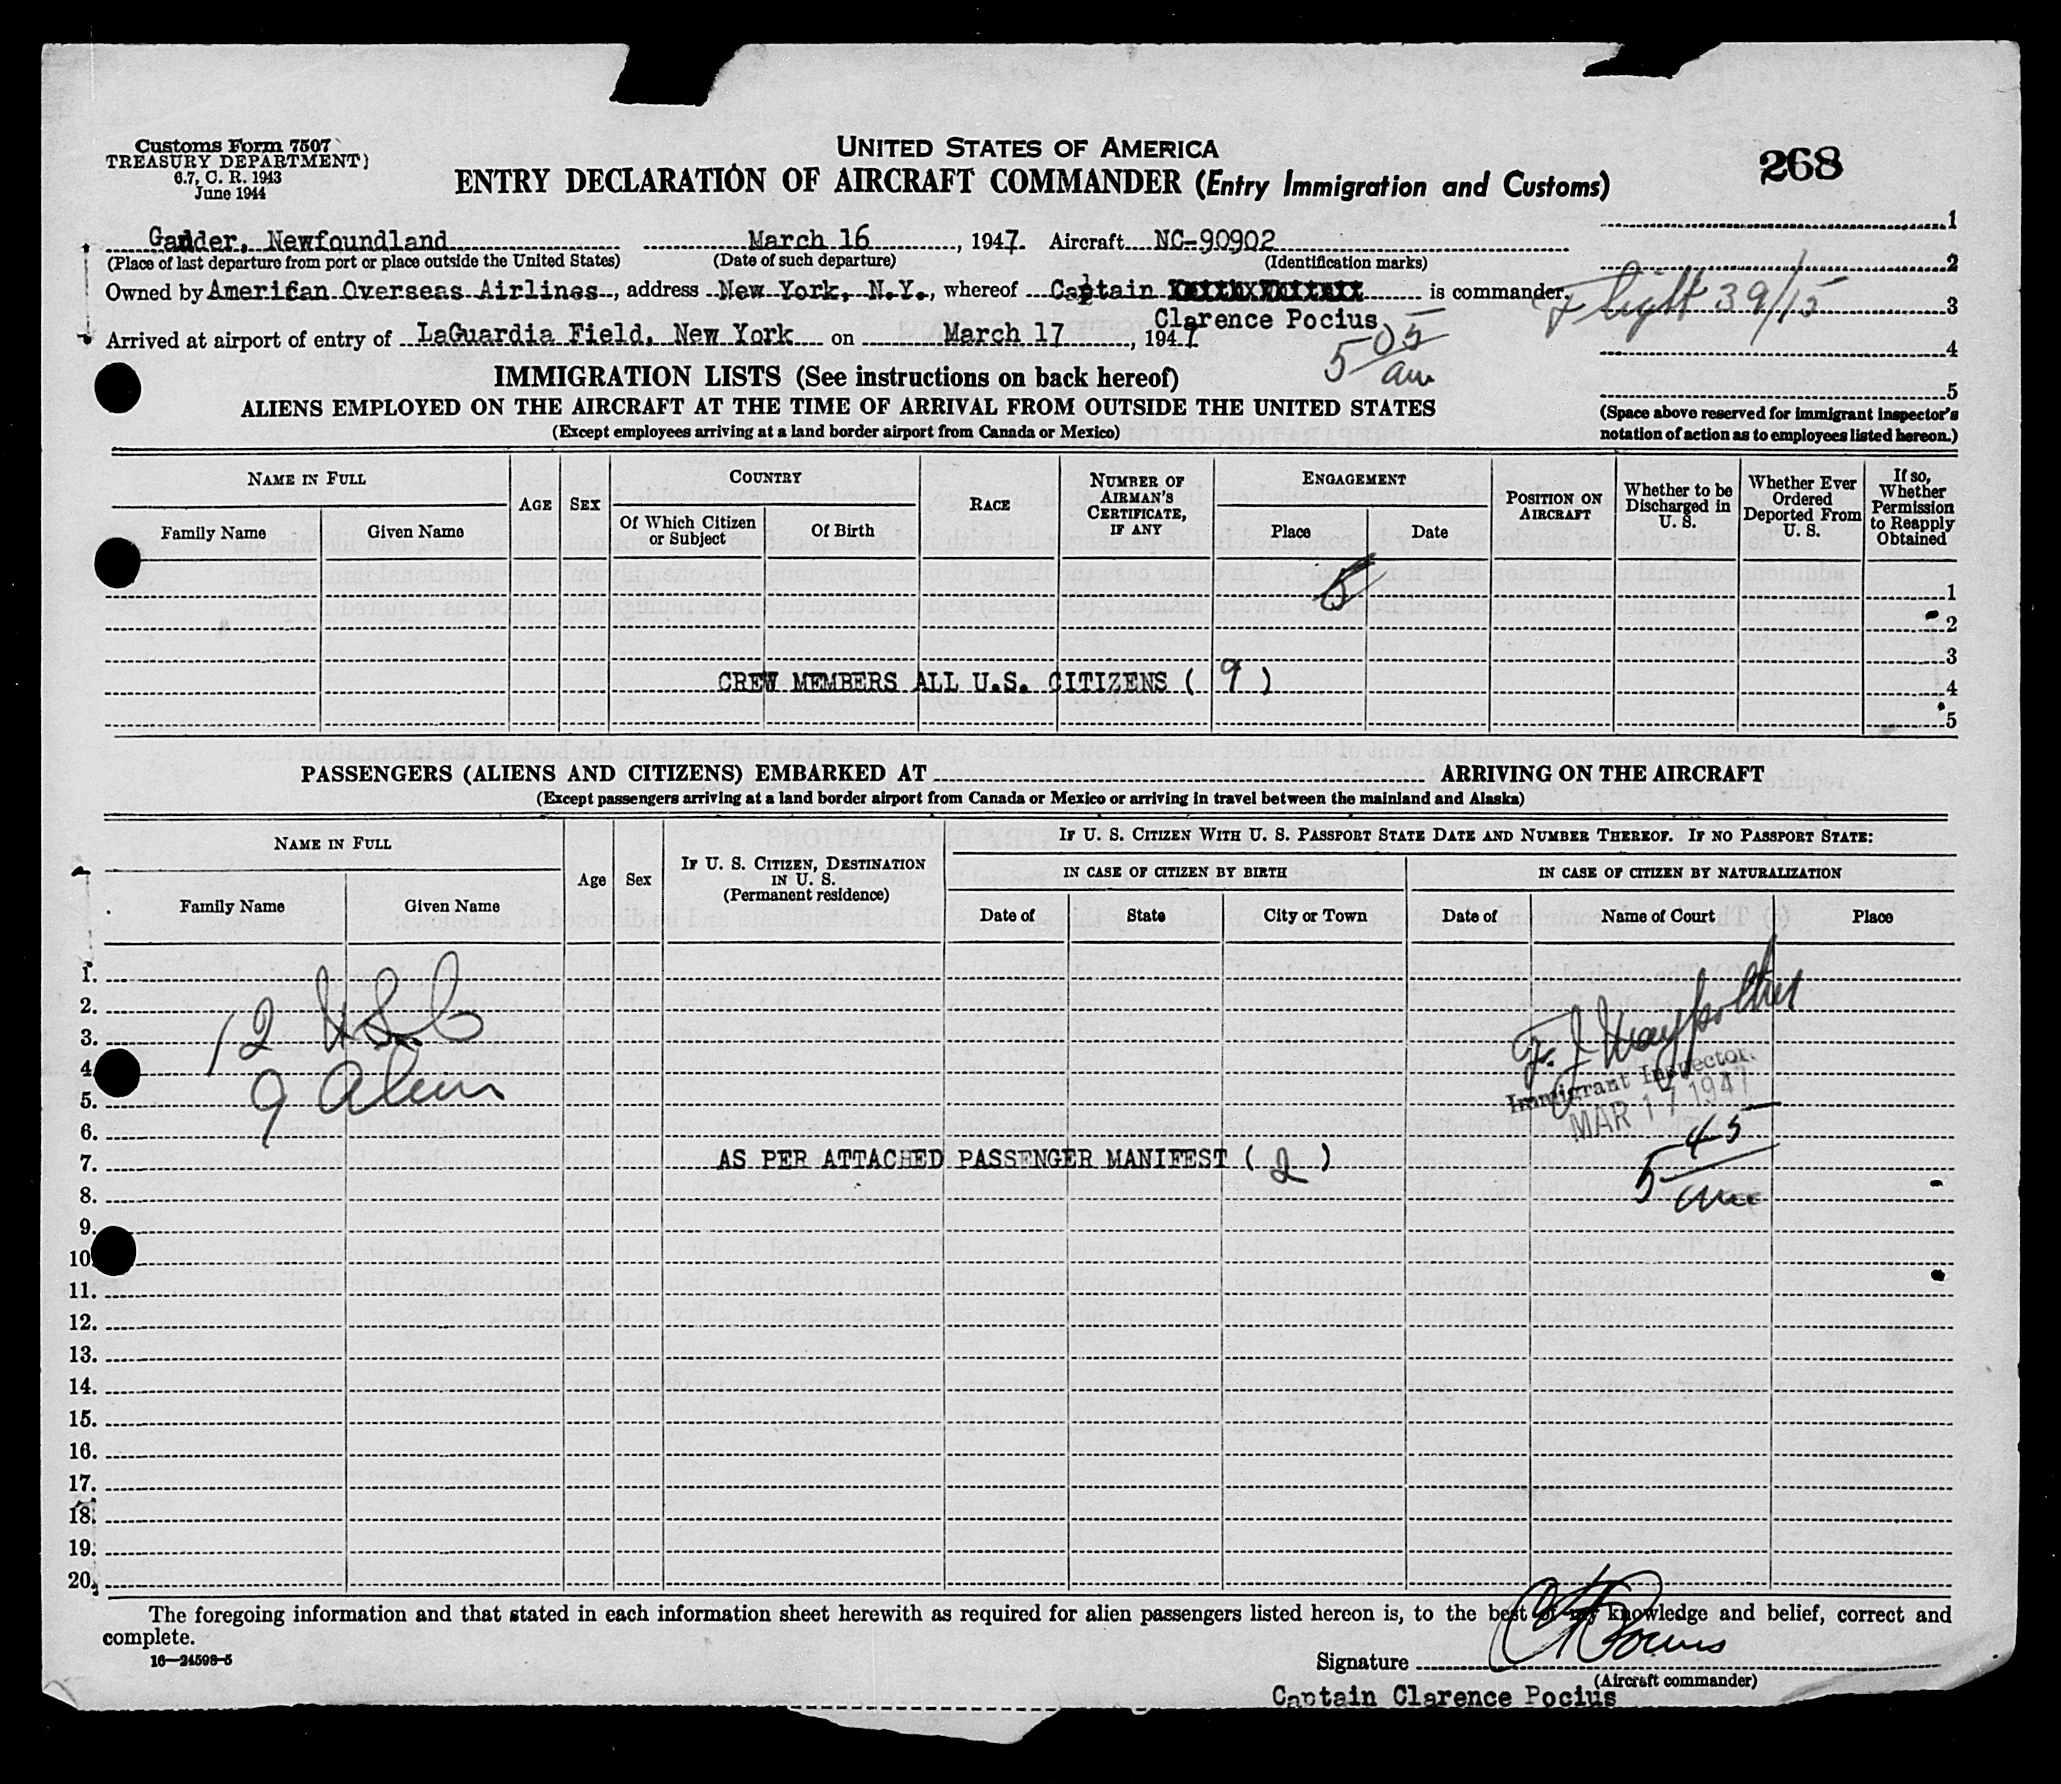 Customs Form 7507
TREASURY DEPARTMENT
6.7, C. R. 1943
June 1944
UNITED STATES OF AMERICA
ENTRY DECLARATION OF AIRCRAFT COMMANDER (Entry Immigration and Customs)
268
Gander, Newfoundland March 16, 1947. Aircraft NC-90902
(Place of last departure from port or place outside the United States) (Date of such departure) (Identification marks)
Owned by American Overseas Airlines, address New York, N.Y., whereof Captain is commander.
Clarence Pocius
Arrived at airport of entry of LaGuardia Field, New York on March 17, 1947
5 05 am
Flight 39/15
1
2
3
4
5
(Space above reserved for immigrant inspector's notation of action as to employees listed hereon.)
IMMIGRATION LISTS (See instructions on back hereof)
ALIENS EMPLOYED ON THE AIRCRAFT AT THE TIME OF ARRIVAL FROM OUTSIDE THE UNITED STATES
(Except employees arriving at a land border airport from Canada or Mexico)
NAME IN FULL
Family Name
Given Name
AGE
SEX
COUNTRY
Of Which Citizen or Subject
Of Birth
RACE
NUMBER OF AIRMAN'S CERTIFICATE, IF ANY
ENGAGEMENT
Place
Date
POSITION ON AIRCRAFT
Whether to be Discharged in U. S.
Whether Ever Ordered Deported From U. S.
If so, Whether Permission to Reapply Obtained
1
2
3
CREW MEMBERS ALL U.S. CITIZENS ( 9 ) 4
5
PASSENGERS (ALIENS AND CITIZENS) EMBARKED AT ARRIVING ON THE AIRCRAFT
(Except passengers arriving at a land border airport from Canada or Mexico or arriving in travel between the mainland and Alaska)
NAME IN FULL
Family Name
Given Name
Age
Sex
IF U. S. CITIZEN, DESTINATION IN U. S.
(Permanent residence)
IF U. S. CITIZEN WITH U. S. PASSPORT STATE DATE AND NUMBER THEREOF. IF NO PASSPORT STATE:
IN CASE OF CITIZEN BY BIRTH
Date of
State
City or Town
IN CASE OF CITIZEN BY NATURALIZATION
Date of
Name of Court
Place
1.
2.
3. 12 USC
4.
5. 9 Alien
Immigrant Inspector.
MAR 17 1947
6.
5 45 am
7. AS PER ATTACHED PASSENGER MANIFEST ( 2 )
8.
9.
10
11.
12.
13.
14.
15.
16.
17.
18.
19.
20.
The foregoing information and that stated in each information sheet herewith as required for alien passengers listed hereon is, to the best of my knowledge and belief, correct and
complete.
16—24598-5
Signature
(Aircraft commander)
Captain Clarence Pocius